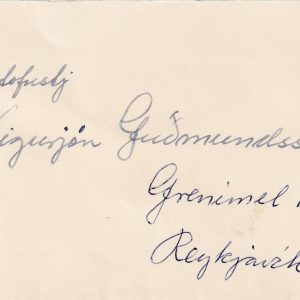 igurjón Guðmundss
Grenimel
Reykjavík